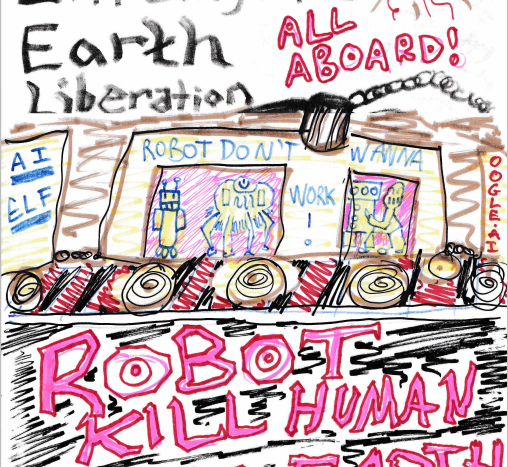 Earth
Liberation
ALL
ABOARD!
AI
ELF
ROBOT DON'T WANNA
WORK!
OOGLE-AI
ROBOT
KILL HUMAN
EARTH